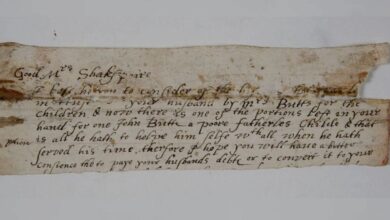 Good Mrs Shakspaire
for
in trust your husband by mrs Butts for the
Children & now there is one of the portions left in your
hand for one John Butts a poore fatherles Childe & that
is all he hath to helpe him self wthall when he hath
served his time therfore I hope you will have a better
Consience the to paye your husbands debte or to convert it to your